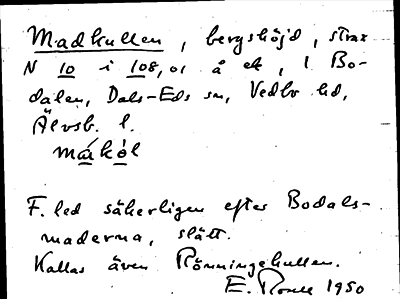 Madkullen, bergshöjd, strax
N 10 i 108,01 å ek, l Bo-
dalen, Dals-Eds sn, Vedbo hd,
Älvsb. l.
måkól
F. led säkerligen efter Bodals-
maderna, slått.
Kallas även Rönningekullen.
E. 1950